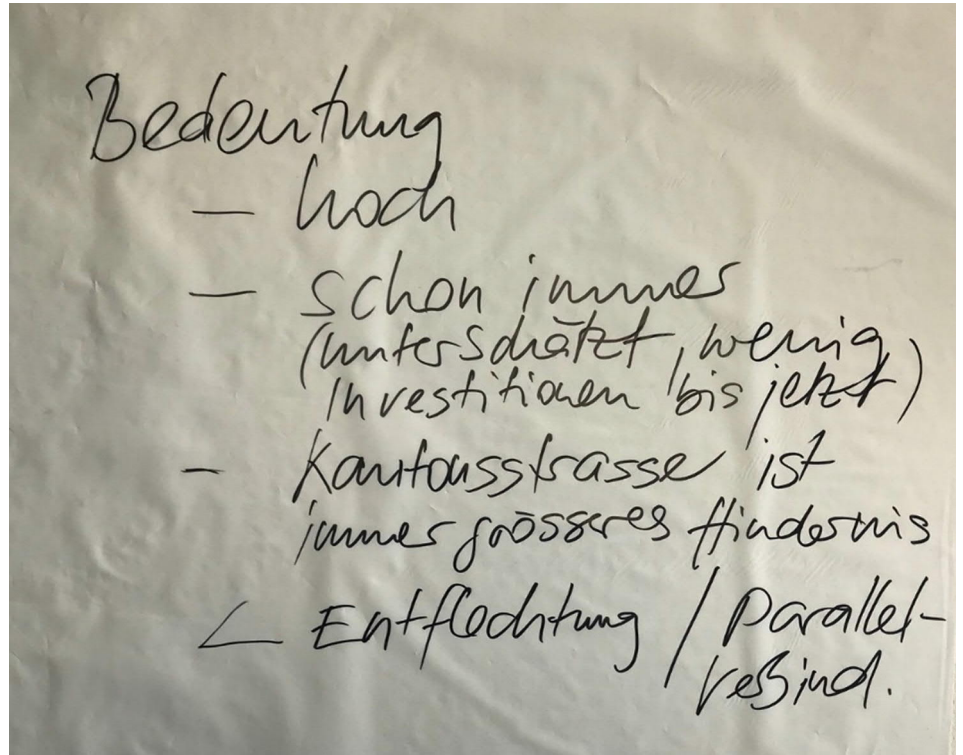 Bedeutung
– hoch
– schon immer
(unterschätzt, wenig
Investitionen bis jetzt)
– Kantonsstrasse ist
immer grösseres Hindernis
∠ Entflechtung / Parallel-
verbind.